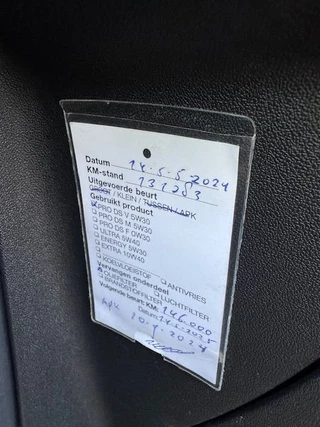 Datum 14.5.2024
KM-stand 131253
Uitgevoerde beurt
GROOT / KLEIN / TUSSEN / APK
Gebruikt product
PRO DS V 5W30
PRO DS M 5W30
PRO DS F 0W30
ULTRA 5W40
ENERGY 5W30
EXTRA 10W40
KOELVLOEISTOF ANTIVRIES
Vervangen onderdeel
OLIEFILTER LUCHTFILTER
BRANDSTOFFILTER
Volgende beurt: KM: 146.000
Datum: 14.5.2025